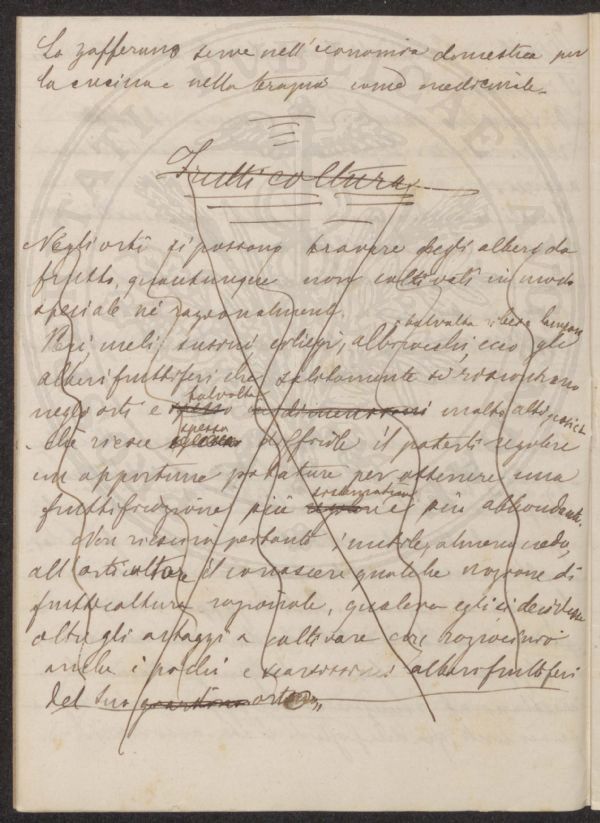 Lo zafferano serve nell'economia domestica per
la cucina e nella terapia come medicinale.
Frutticoltura
Negli orti si possono trovare degli alberi da
frutto, quantunque non coltivati in modo
speciale nè razionalmente.
talvolta ribes e lamponi
Peri, meli, susini ciliegi, albicocchi, ecco gli
alberi fruttiferi che solitamente si riscontrano
talvolta
negli orti e spesso di dimensioni molto alti
spesso
che riesce difficile il poterli regolare
con opportune potature per ottenere una
fruttificazione più e più abbondante.
Non riuscirà pertanto inutile, almeno credo,
all'orticoltore il conoscere qualche nozione di
frutticoltura razionale, qualora egli si decidesse
oltre gli ortaggi a coltivare con raziocinio
anche i pochi e scarsissimi alberi fruttiferi
del suo giardino orto